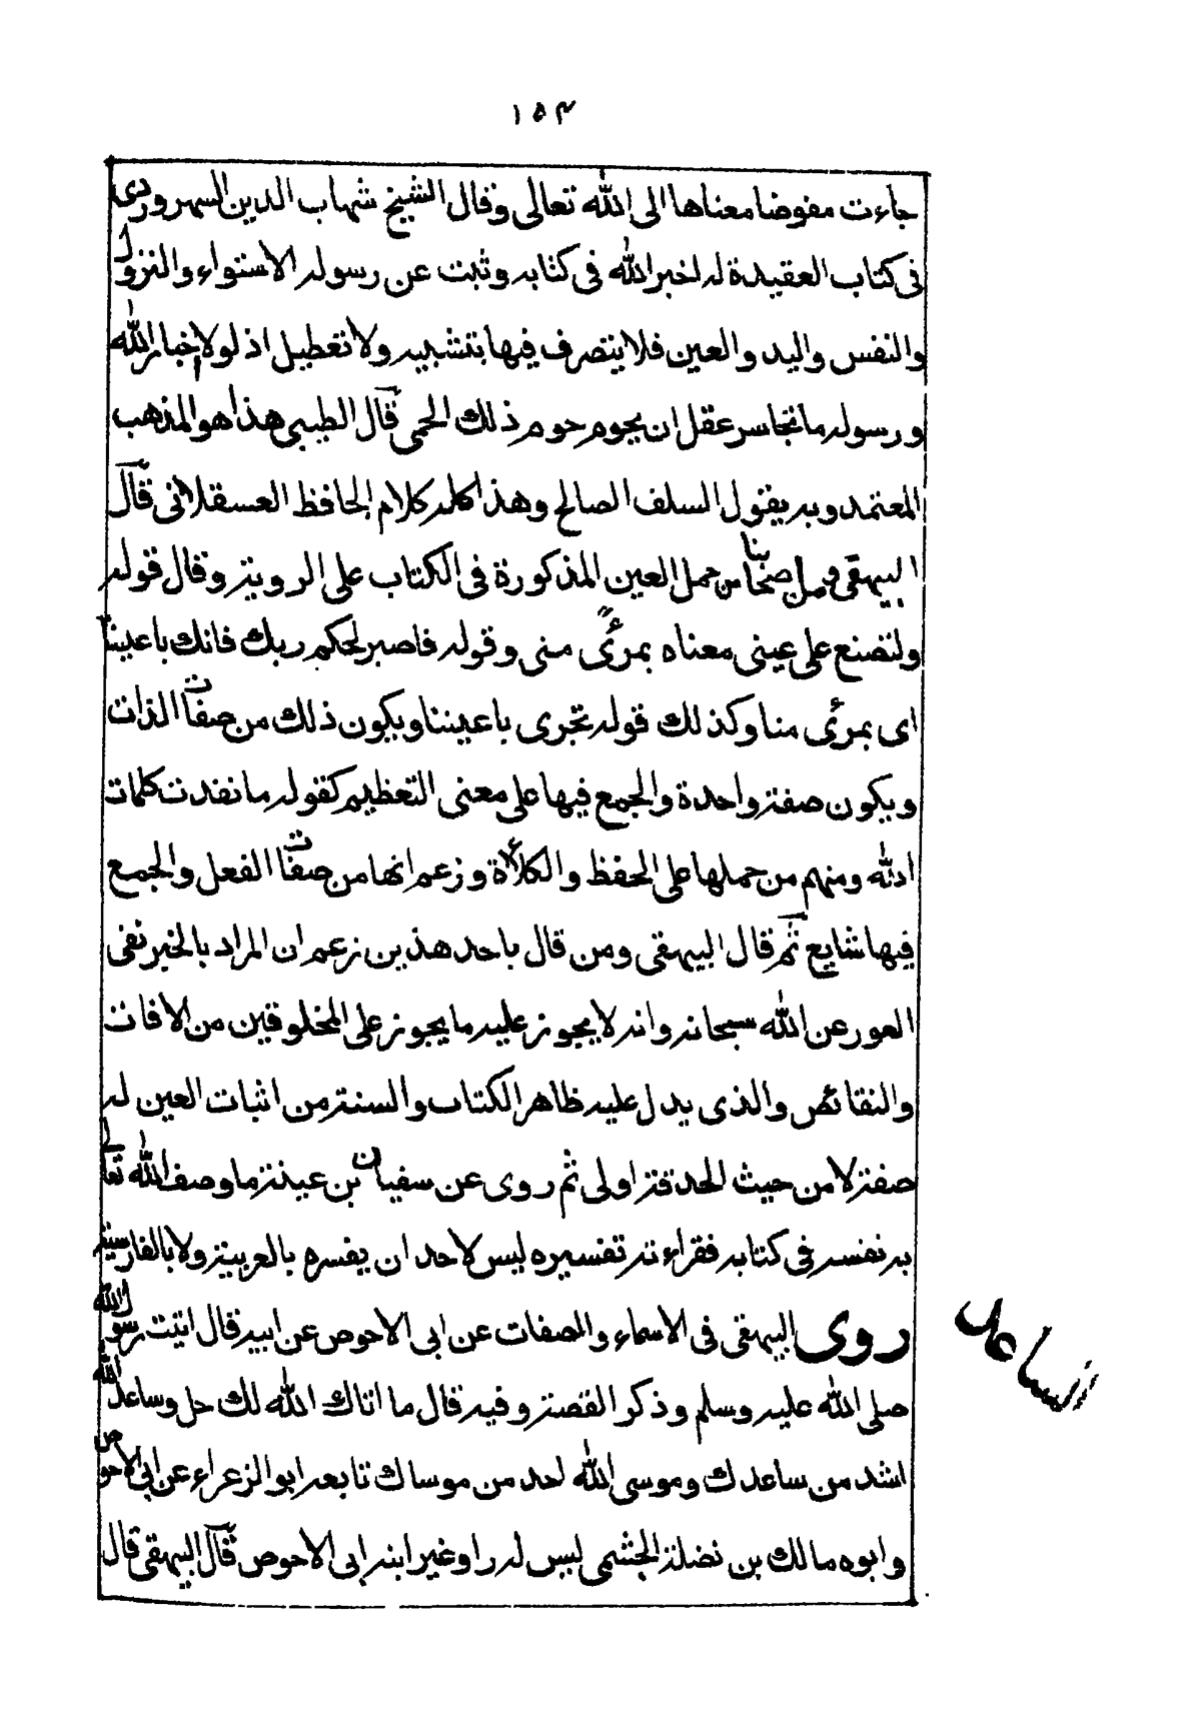 ١٥٣
جاءت مفوضا معناها الى الله تعالى وقال الشيخ شهاب الدين السهروردى
فى كتاب العقيدة له اخبر الله فى كتابه وثبت عن رسوله الاستواء والنزول
والنفس واليد والعين فلا يتصرف فيها بتشبيه ولا تعطيل اذ لولا اخبار الله
ورسوله ما تجاسر عقل ان يحوم حوم ذلك الحمى قال الطيبى هذا هو المذهب
المعتمد وبه يقول السلف الصالح وهذا كله كلام الحافظ العسقلانى قال
البيهقى ومن اصحابنا من حمل العين المذكورة فى الكتاب على الروية وقال قوله
ولتصنع على عينى معناه بمرئً منى وقوله فاصبر لحكم ربك فانك باعيننا
اى بمرئ منا وكذلك قوله تجرى باعيننا ويكون ذلك من صفات الذات
ويكون صفة واحدة والجمع فيها على معنى التعظيم كقوله ما نفدت كلمات
الله ومنهم من حملها على الحفظ والكلاءة وزعم انها من صفات الفعل والجمع
فيها شايع ثم قال البيهقى ومن قال باحد هذين زعم ان المراد بالخبر نفى
العور عن الله سبحانه وانه لا يجوز عليه ما يجوز على المخلوقين من الافات
والنقائص والذى يدل عليه ظاهر الكتاب والسنة من اثبات العين له
صفة لا من حيث الحدقة اولى ثم روى عن سفيان بن عيينة ما وصف الله تعالى
به نفسه فى كتابه فقراءته تفسيره ليس لاحد ان يفسره بالعربية ولا بالفارسية
روى البيهقى فى الاسماء والصفات عن ابى الاحوص عن ابيه قال اتيت رسول الله
صلى الله عليه وسلم وذكر القصة وفيه قال ما اتاك الله لك حل وساعد الله
اشد من ساعدك وموسى الله احد من موساك تابعه ابو الزعراء عن ابى الاحوص
وابوه مالك بن نضلة الجشمى ليس له راو غير ابنه ابى الاحوص قال البيهقى قال
الساعد